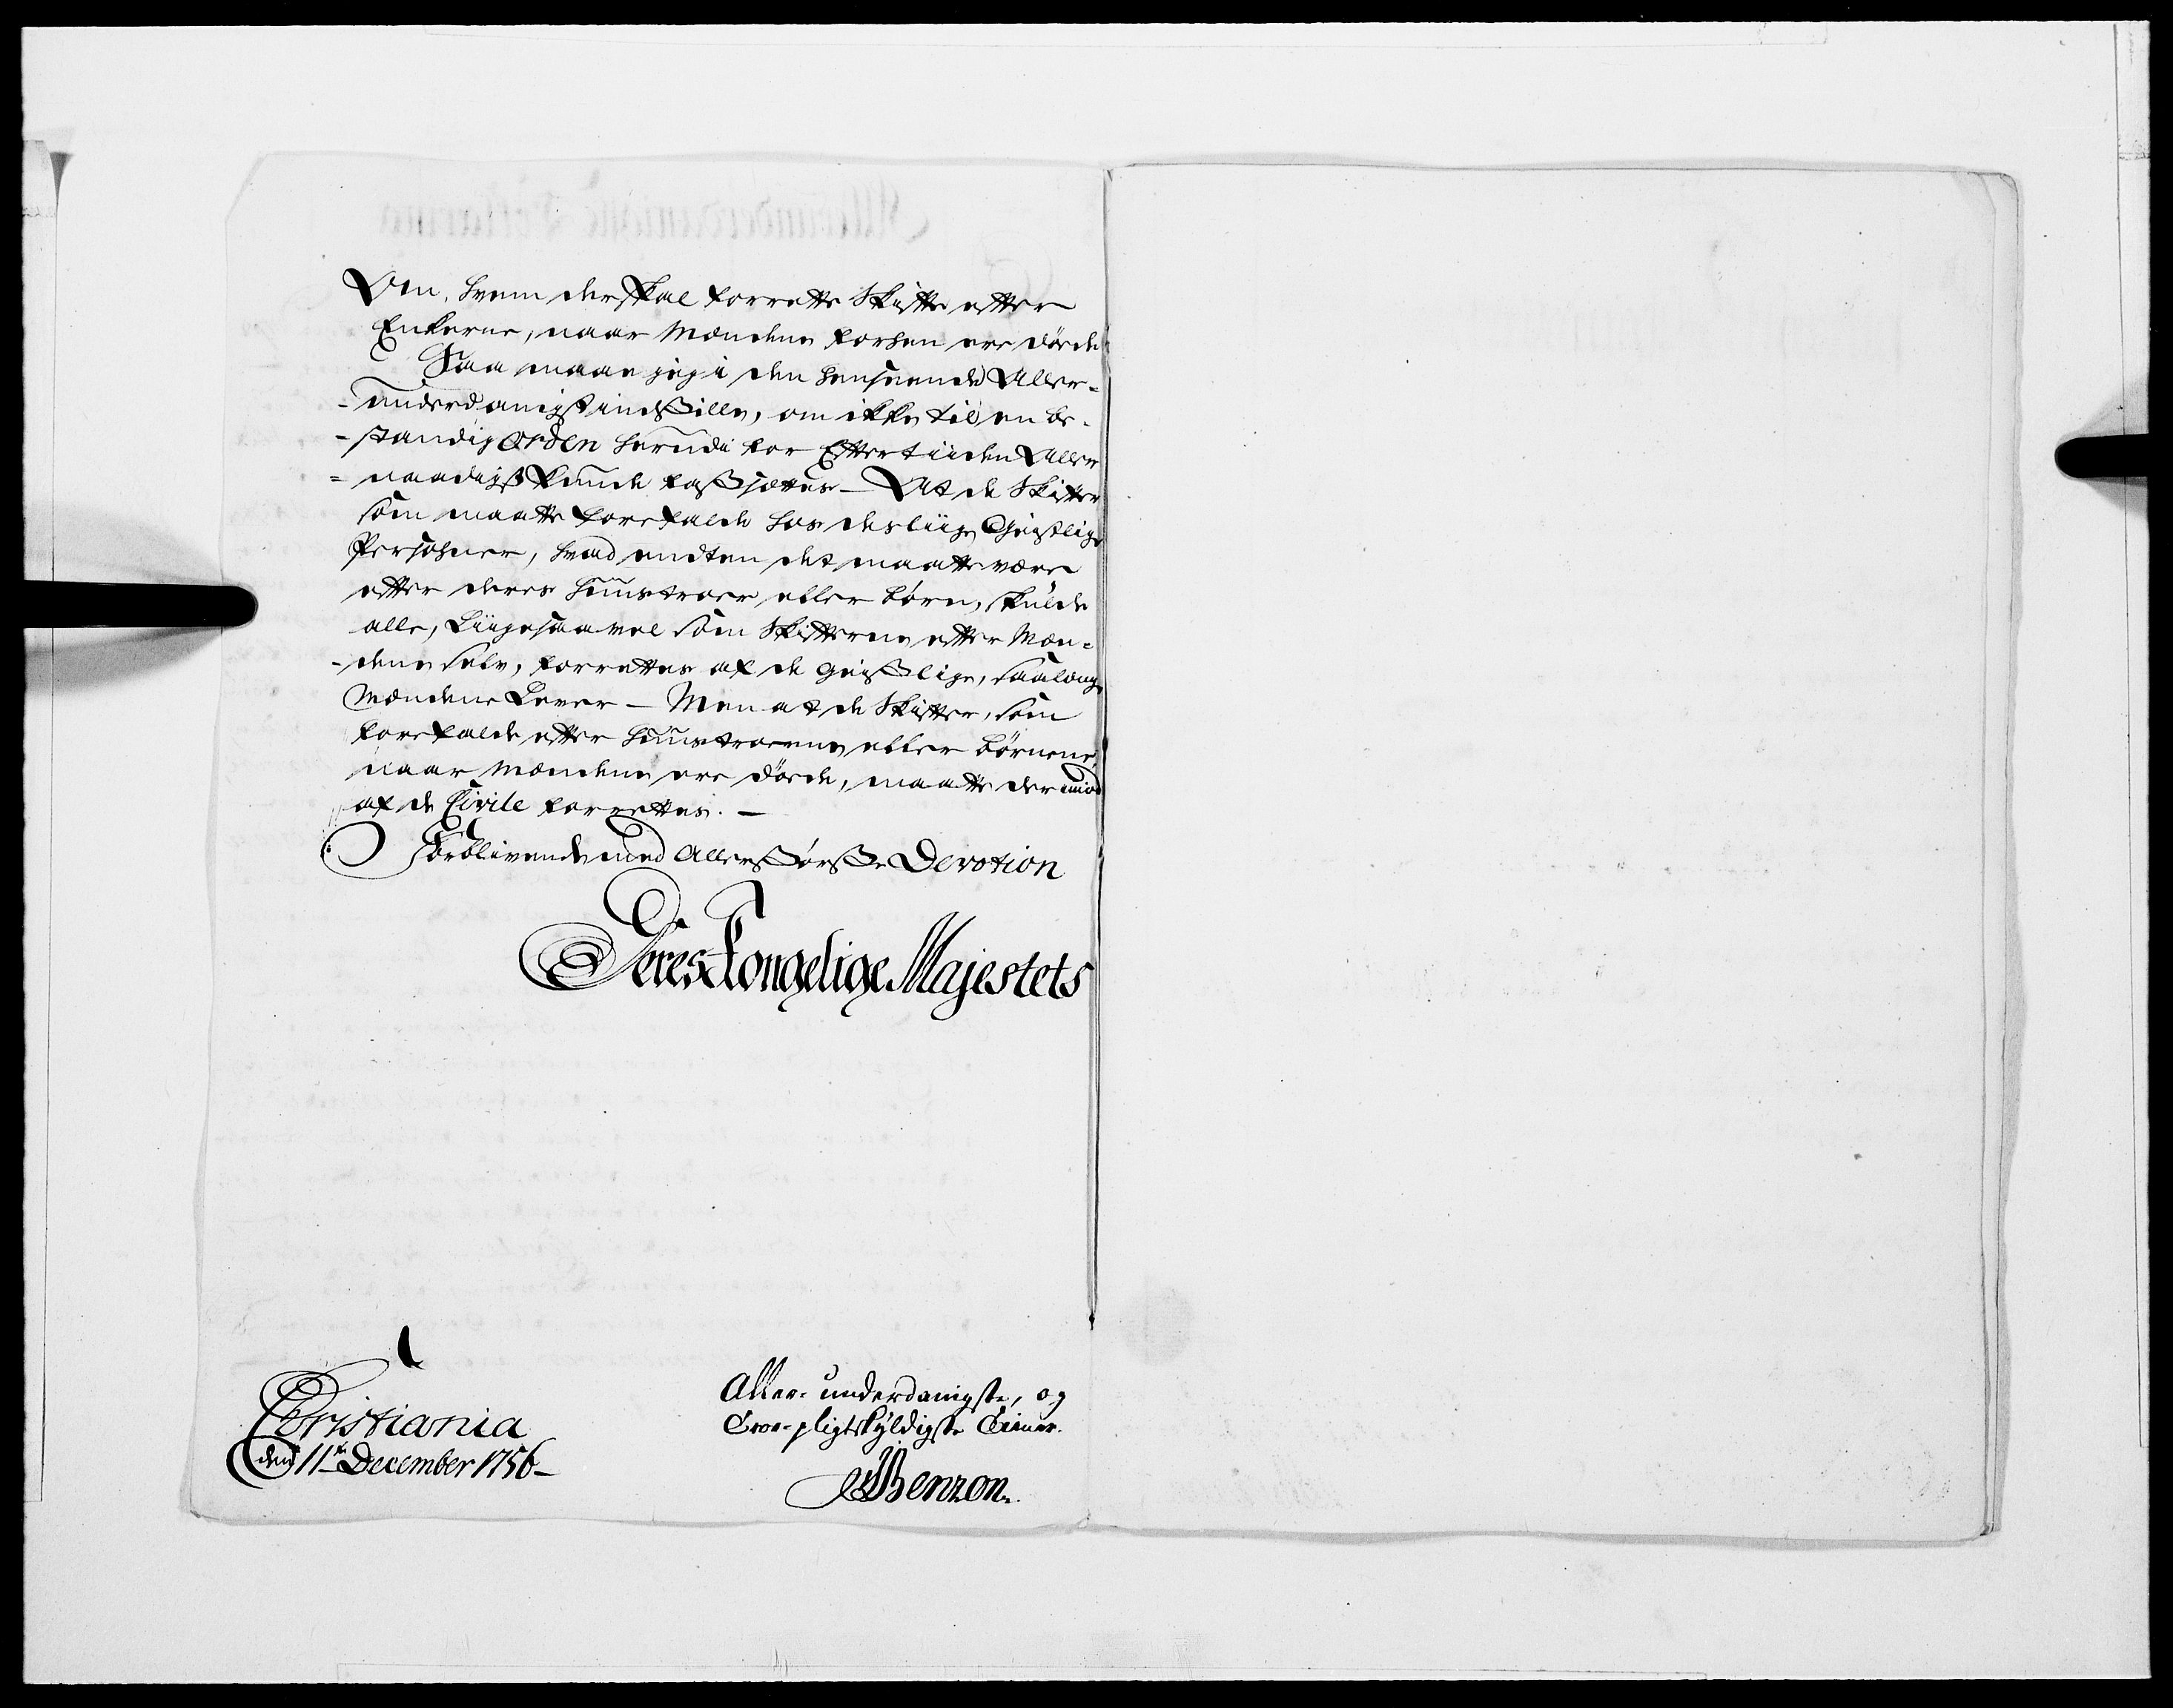 Om, hvem der skal forrette Skifte efter
Enkerne, naar Mændene forhen ere døde
Saa maae jeg i den henseende Aller-
-underdanigst indstille, om ikke til en be-
-standig Orden herudi for Eftertiiden Aller
-naadigst kunde fastsættes - At de Skifter
som maatte forefalde hos desliige Geistlige
Persohner, hvad endten det maatte være
efter deres Huustroer eller børn, skulde
alle, Liigesaavel som Skifterne efter Mæn-
-dene selv, forrettes af de geistlige, saalænge
Mændene Lever - Men at de Skifter, som
forefalde efter Huustroerne eller børnene,
naar Mændene ere døde, maatte derimod
af de Civile forrettes. -
Forblivende med Allerstørste Devotion
Deres Kongelige Majestets
Christiania
den 11te December 1756-
Aller-underdanigste, og
Troe-pligtskyldigste Tiener.
JBenzon.